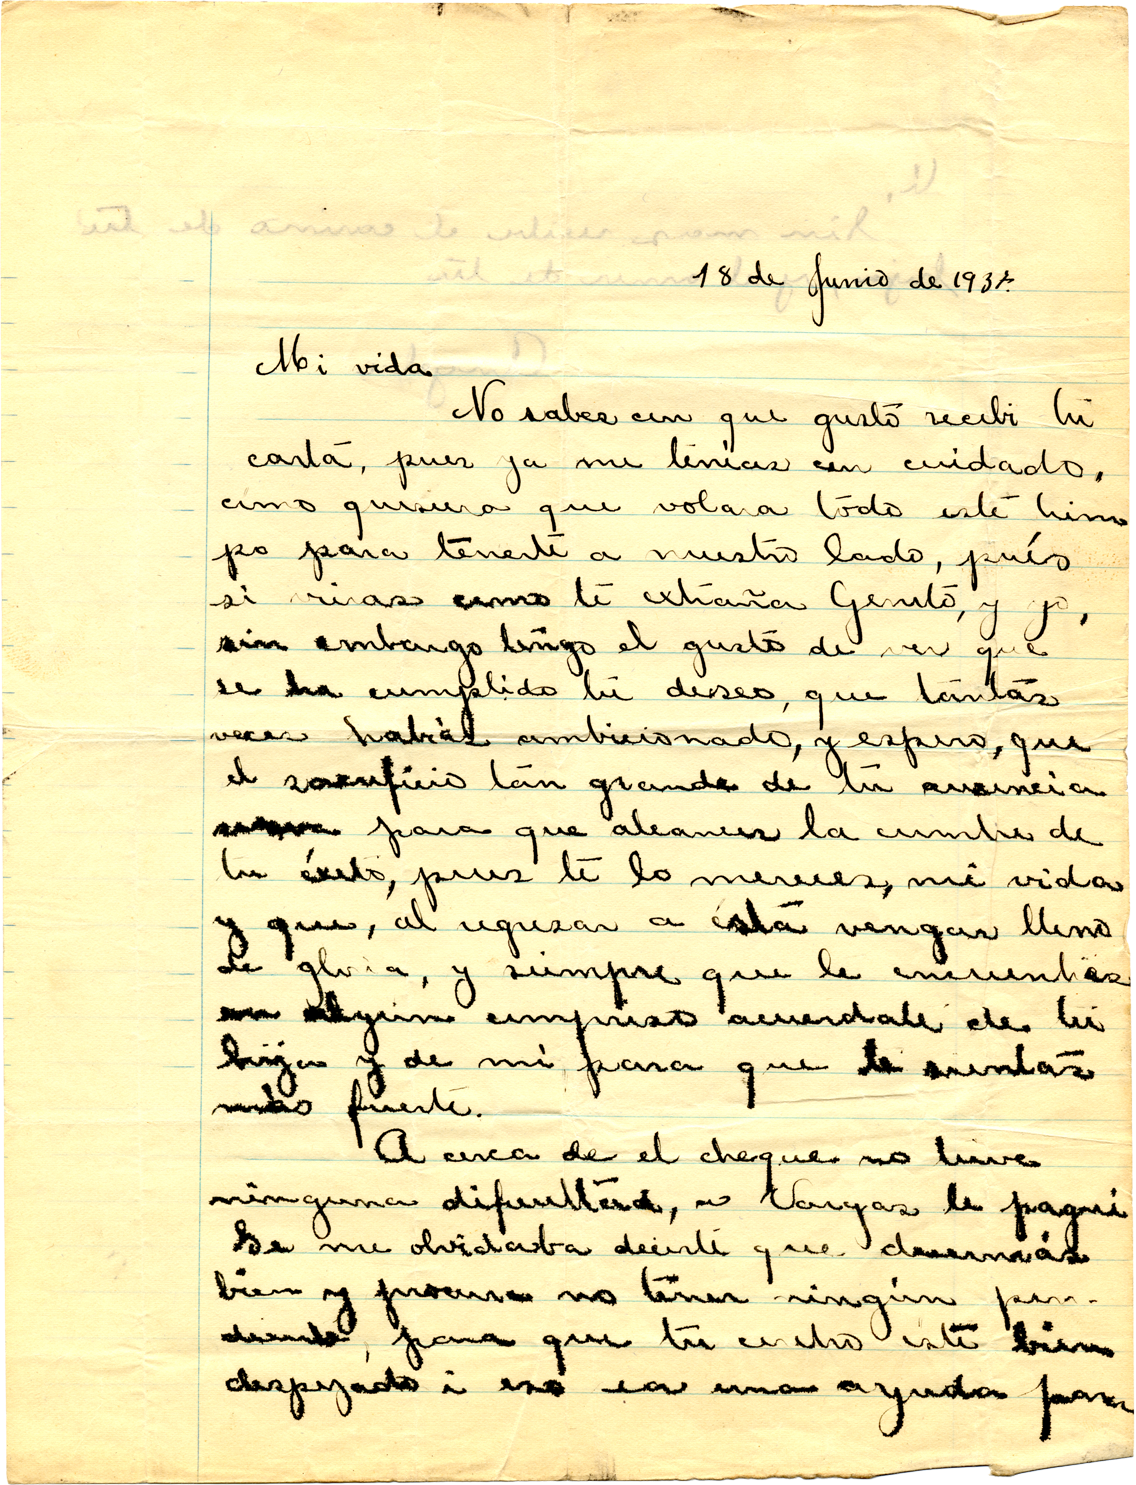 18 de Junio de 193
Mi vida
No sabes con que gusto recibi tú
carta, pues ya me tenías con cuidado,
como quisiera que volara todo este tiem
po para tenerte a nuestro lado, pués
si vieras como te extraña y yo,
sin embargo tengo el gusto de ver que
se ha cumplido tú deseo, que tantas
veces habías ambicionado, y espero, que
el sacrificio tan grande de tú ausencia
para que alcances la cumbre de
tu éxito, pues te lo mereces, mi vida
y que, al regresar a ésta vengas lleno
de gloria, y siempre que te encuentres
en algún compriso acuerdate de tú
hija y de mi para que te sientas
más fuerte.
A cerca de el cheque no tuve
ninguna dificultad, a Vargas le pagué
Se me olvidaba decirte que duermas
bien y procura no tener ningún pen-
diente, para que tu cerebro esté bien
despejado i eso es una ayuda para